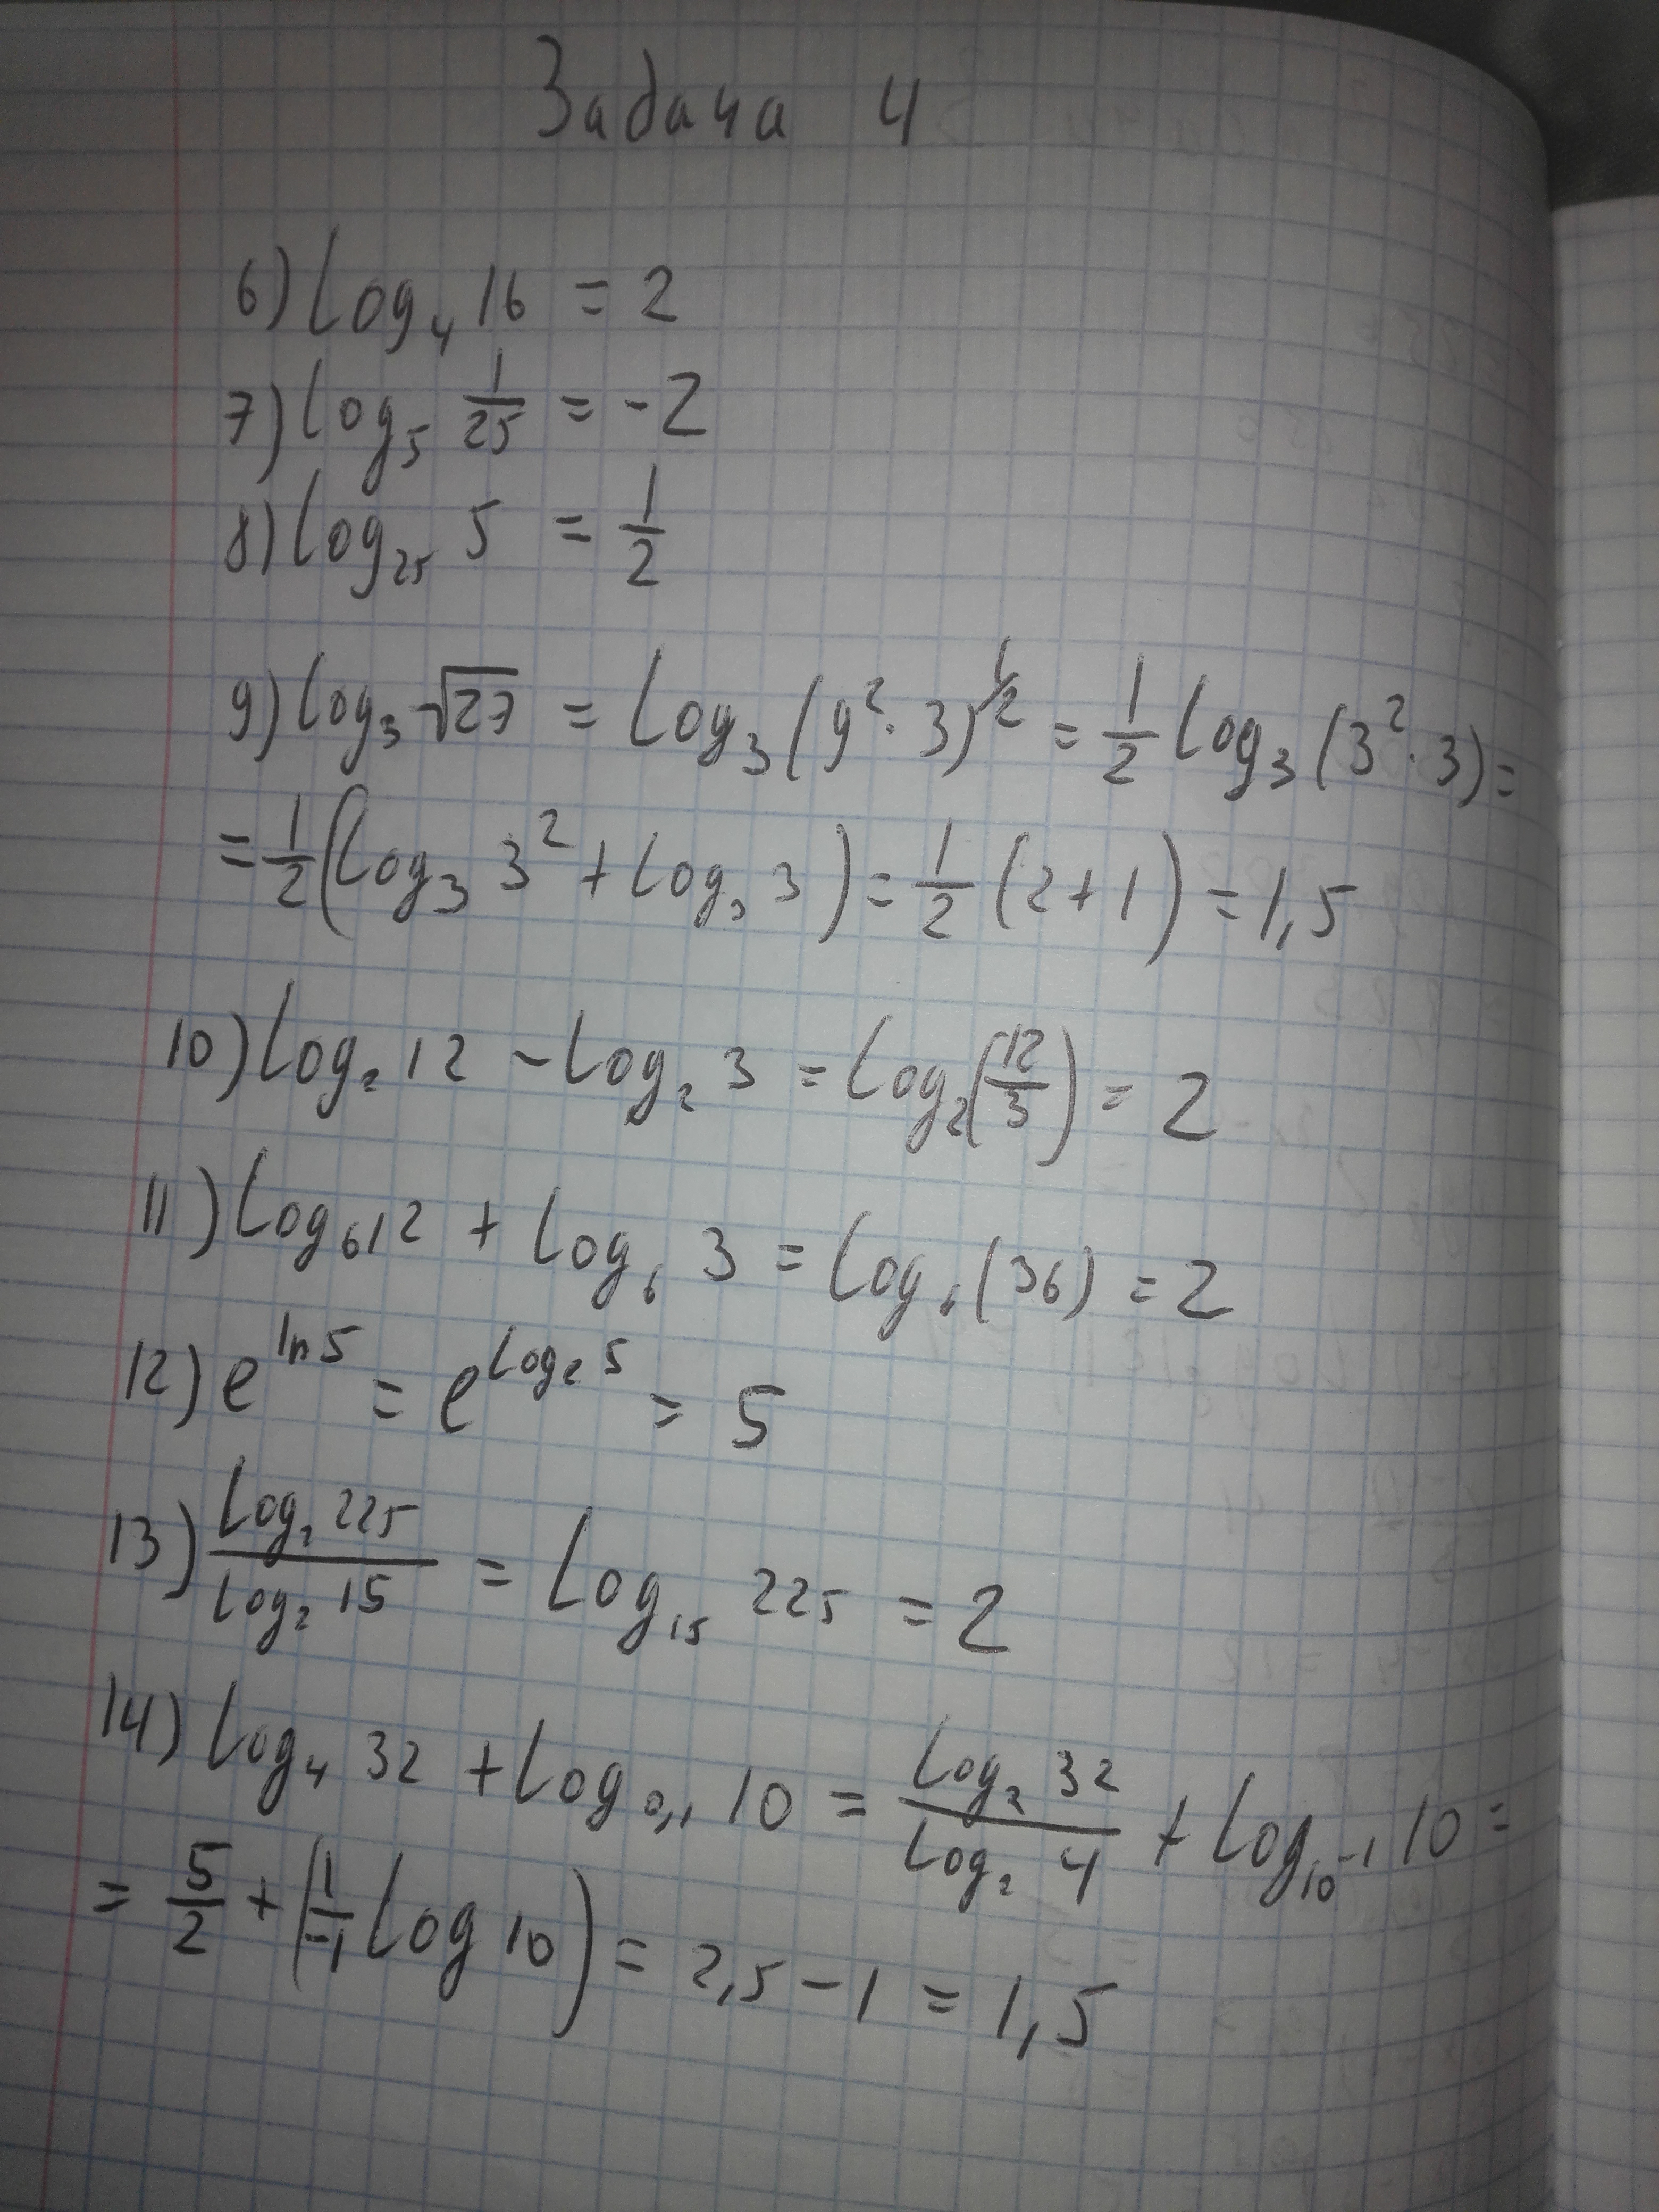 Задача 4
6) log₄ 16 = 2
7) log₅ 1/25 = -2
8) log₂₅ 5 = 1/2
9) log₃ √27 = log₃ (9² · 3)^1/2 = 1/2 log₃ (3² · 3) =
= 1/2 (log₃ 3² + log₃ 3) = 1/2 (2 + 1) = 1,5
10) log₂ 12 - log₂ 3 = log₂ (12/3) = 2
11) log₆ 12 + log₆ 3 = log₆ (36) = 2
12) e^ln 5 = e^logₑ 5 = 5
13) log₂ 225 / log₂ 15 = log₁₅ 225 = 2
14) log₄ 32 + log₀,₁ 10 = log₂ 32 / log₂ 4 + log₁₀₋₁ 10 =
= 5/2 + (1/-1 log 10) = 2,5 - 1 = 1,5